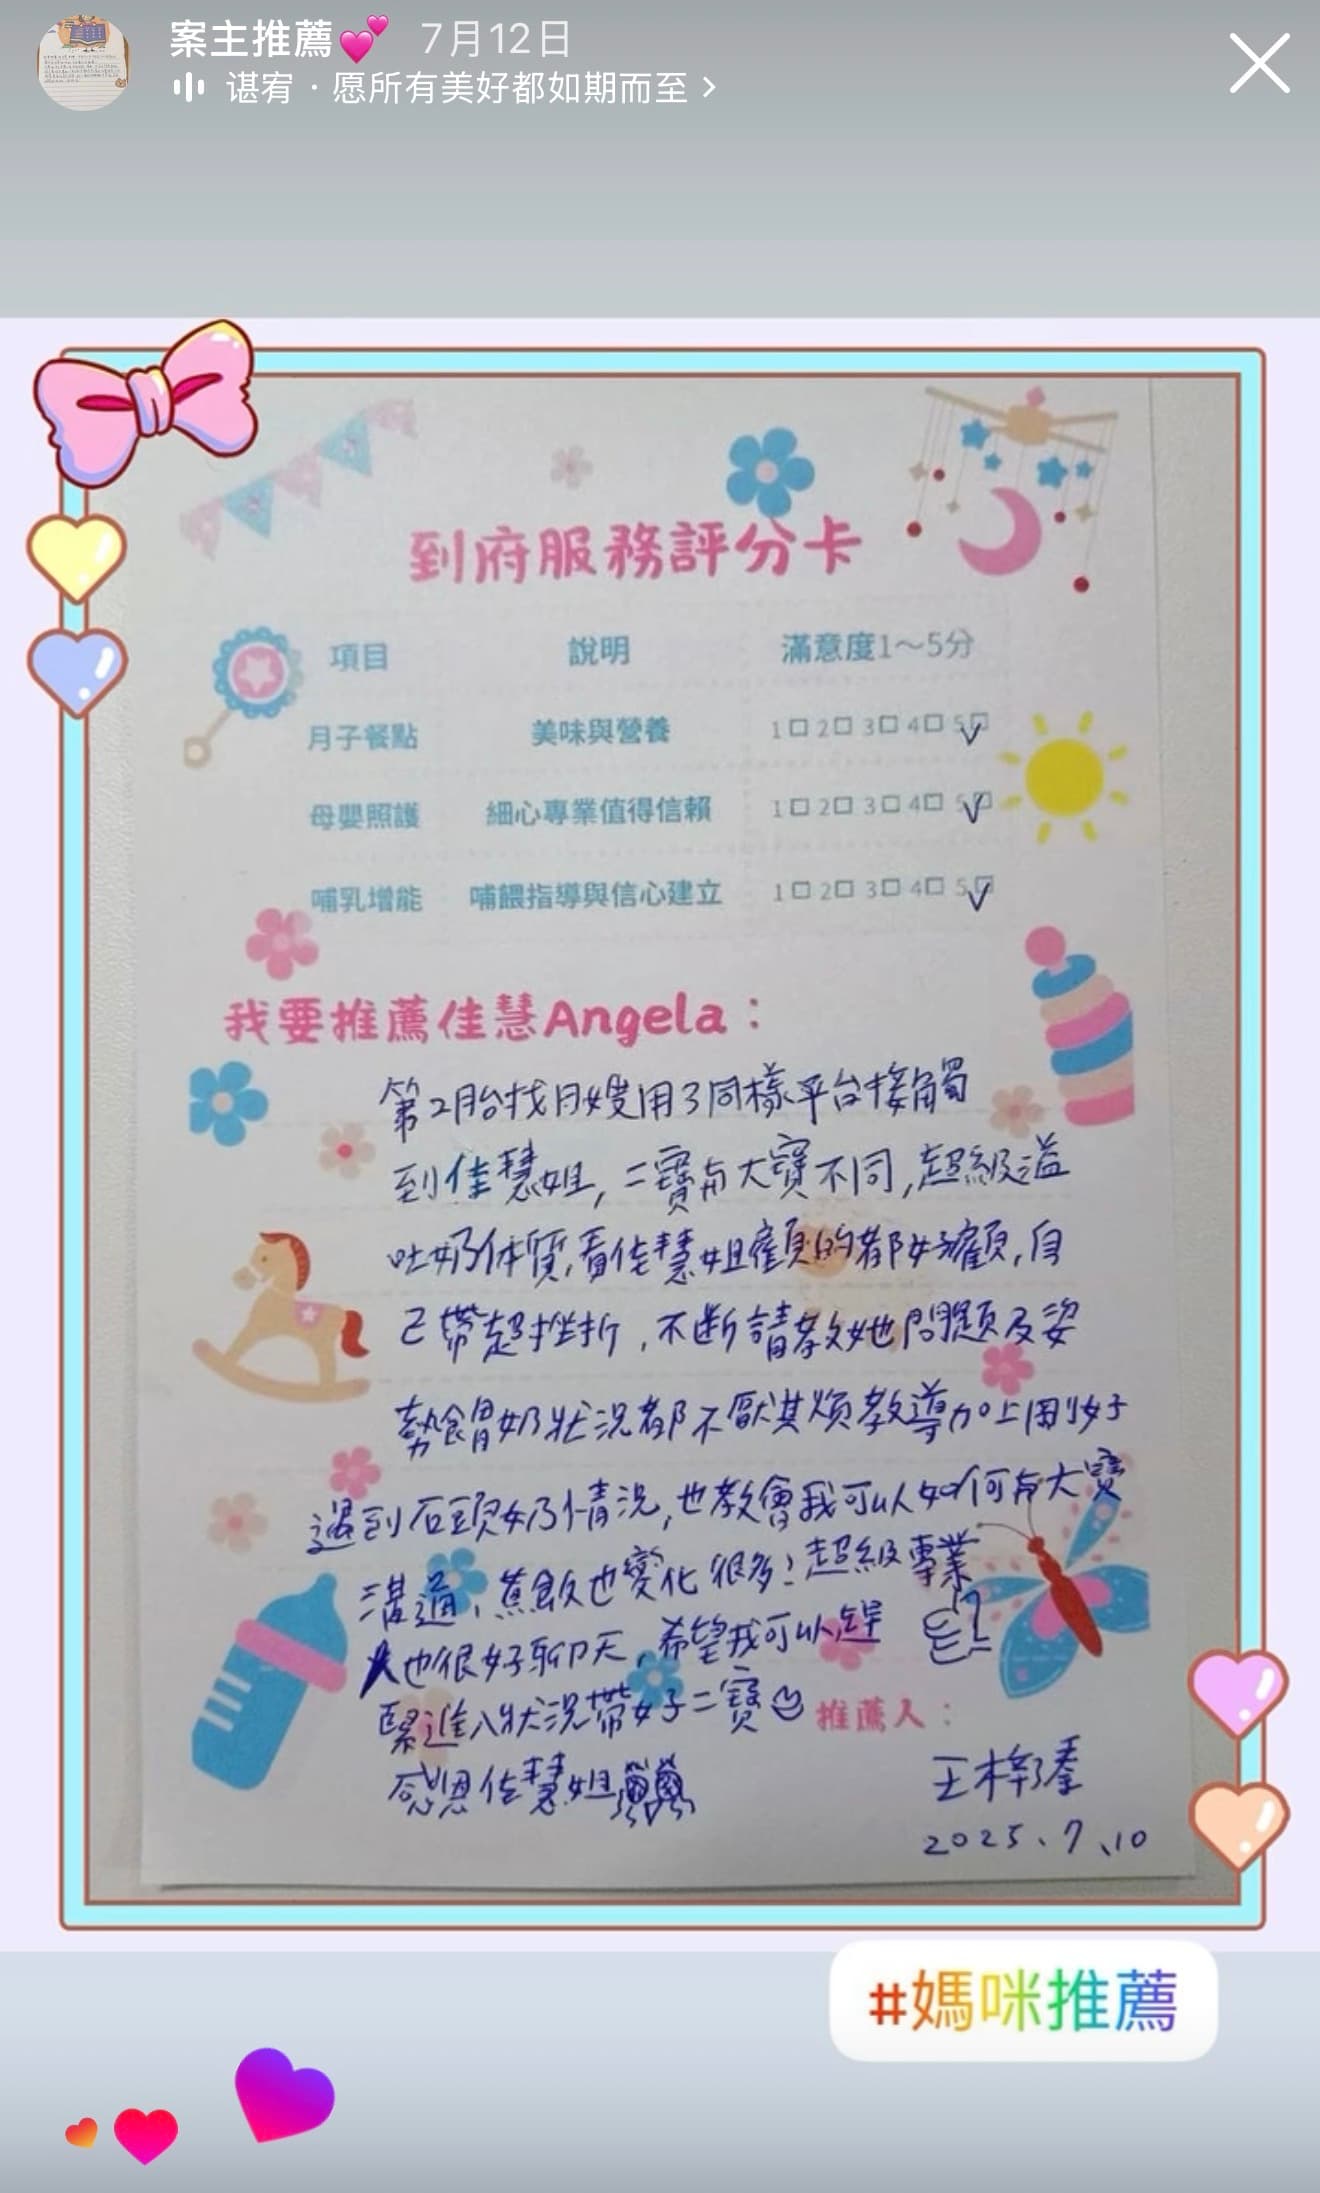 案主推薦💕 7月12日
谌宥 · 愿所有美好都如期而至 >
到府服務評分卡
項目 說明 滿意度1～5分
月子餐點 美味與營養 1□ 2□ 3□ 4□ 5☑
母嬰照護 細心專業值得信賴 1□ 2□ 3□ 4□ 5☑
哺乳增能 哺餵指導與信心建立 1□ 2□ 3□ 4□ 5☑
我要推薦佳慧Angela：
第2胎找月嫂用了同樣平台接觸
到佳慧姐, 二寶與大寶不同,超級溢
吐奶体質,看佳慧姐顧的都好顧,自
己帶超挫折,不斷請教她問題及姿
勢餵奶狀況都不厭其煩教導加上剛好
遇到石頭奶情況,也教會我可以如何與大寶
溝通,煮飯也變化很多!超級專業
人也很好聊天,希望我可以趕
緊進入狀況帶好二寶
推薦人：
感恩佳慧姐
王梓
2025、7、10
#媽咪推薦